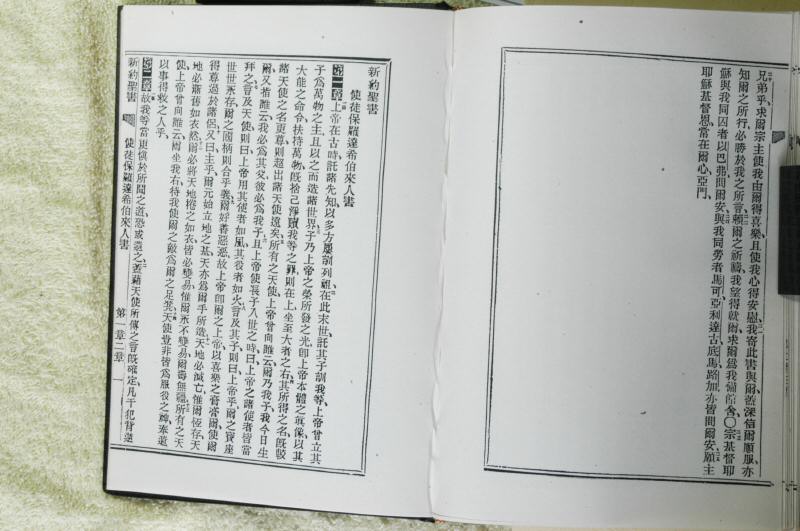 兄弟乎、求爾宗主使我由爾得喜樂、且使我心得安慰、我寄此書與爾、蓋深信爾順服、亦
知爾之所行、必勝於我之所言、賴爾之祈禱、我望得就爾、求爾爲我備館舍、〇宗基督耶
穌與我同囚者以巴弗問爾安、與我同勞者馬可、亞利達古、底馬、路加、亦皆問爾安、願主
耶穌基督恩常在爾心、亞門、
新約聖書
使徒保羅達希伯來人書
第一章 上帝在古時託諸先知以多方屢訓列祖、在此末世、託其子訓我等、上帝曾立其
子爲萬物之主、且以之而造諸世界、子乃上帝之榮所發之光、卽上帝本體之眞像、以其
大能之命令扶持萬物、旣捨己淨贖我等之罪、則在上坐至大者之右、其所得之名、旣駿
諸天使之名更尊、則超出諸天使遠矣、所有之天使、上帝曾向誰云、爾乃我子、我今日生
爾、又指誰云、我必爲其父、彼必爲我子、且上帝使長子入世之時、曰、上帝之諸使者皆當
拜之、言及天使則曰、上帝用其使者如風、其役者如火、言及其子、則曰、上帝乎、爾之寶座
世世永存、爾之國柄則合乎義、爾好善惡惡、故上帝卽爾之上帝、以喜樂之膏膏爾、使爾
得尊過於諸侶、又曰、主乎、爾元始立地之基、天亦爲爾手所造、天地必滅亡、惟爾恆存、天
地必漸舊如衣然、爾必將天地捲之如衣、皆必變易、惟爾永不變易、爾壽無疆、所有之天
使、上帝曾向誰云、爾坐我右、待我使爾之敵爲爾之足凳、天使豈非皆爲服役之神、奉遣
以事得救之人乎、
第二章 故我等當更愼於所聞之道、恐或遺之、蓋藉天使所傳之言旣確定、凡干犯背逆
新約聖書 使徒保羅達希伯來人書 第一章二章 一